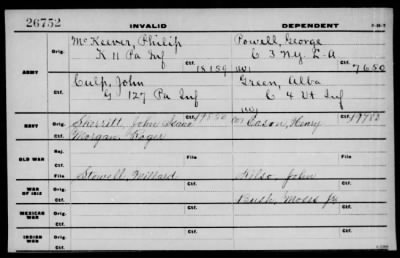 26752
INVALID
DEPENDENT
ARMY
Orig.
McKeever, Philip
K 11 Pa Inf
Ctf.
18159
Powell, George
C 3 N.Y. L-A
Ctf. 7650
Orig.
Culp, John
G 127 Pa Inf
Ctf.
Green, Alba
C 4 Vt Inf
Ctf.
NAVY
Orig.
Sherritt, John
Ctf.
Morgan, Roger
Eason, Henry
Ctf. 19783
OLD WAR
Rej.
Ctf.
File
File
WAR OF 1812
Orig.
Stowell, Willard
Ctf.
John
Ctf.
Rush, Moses Jr
MEXICAN WAR
Orig.
Ctf.
Ctf.
INDIAN WAR
Orig.
Ctf.
Ctf.